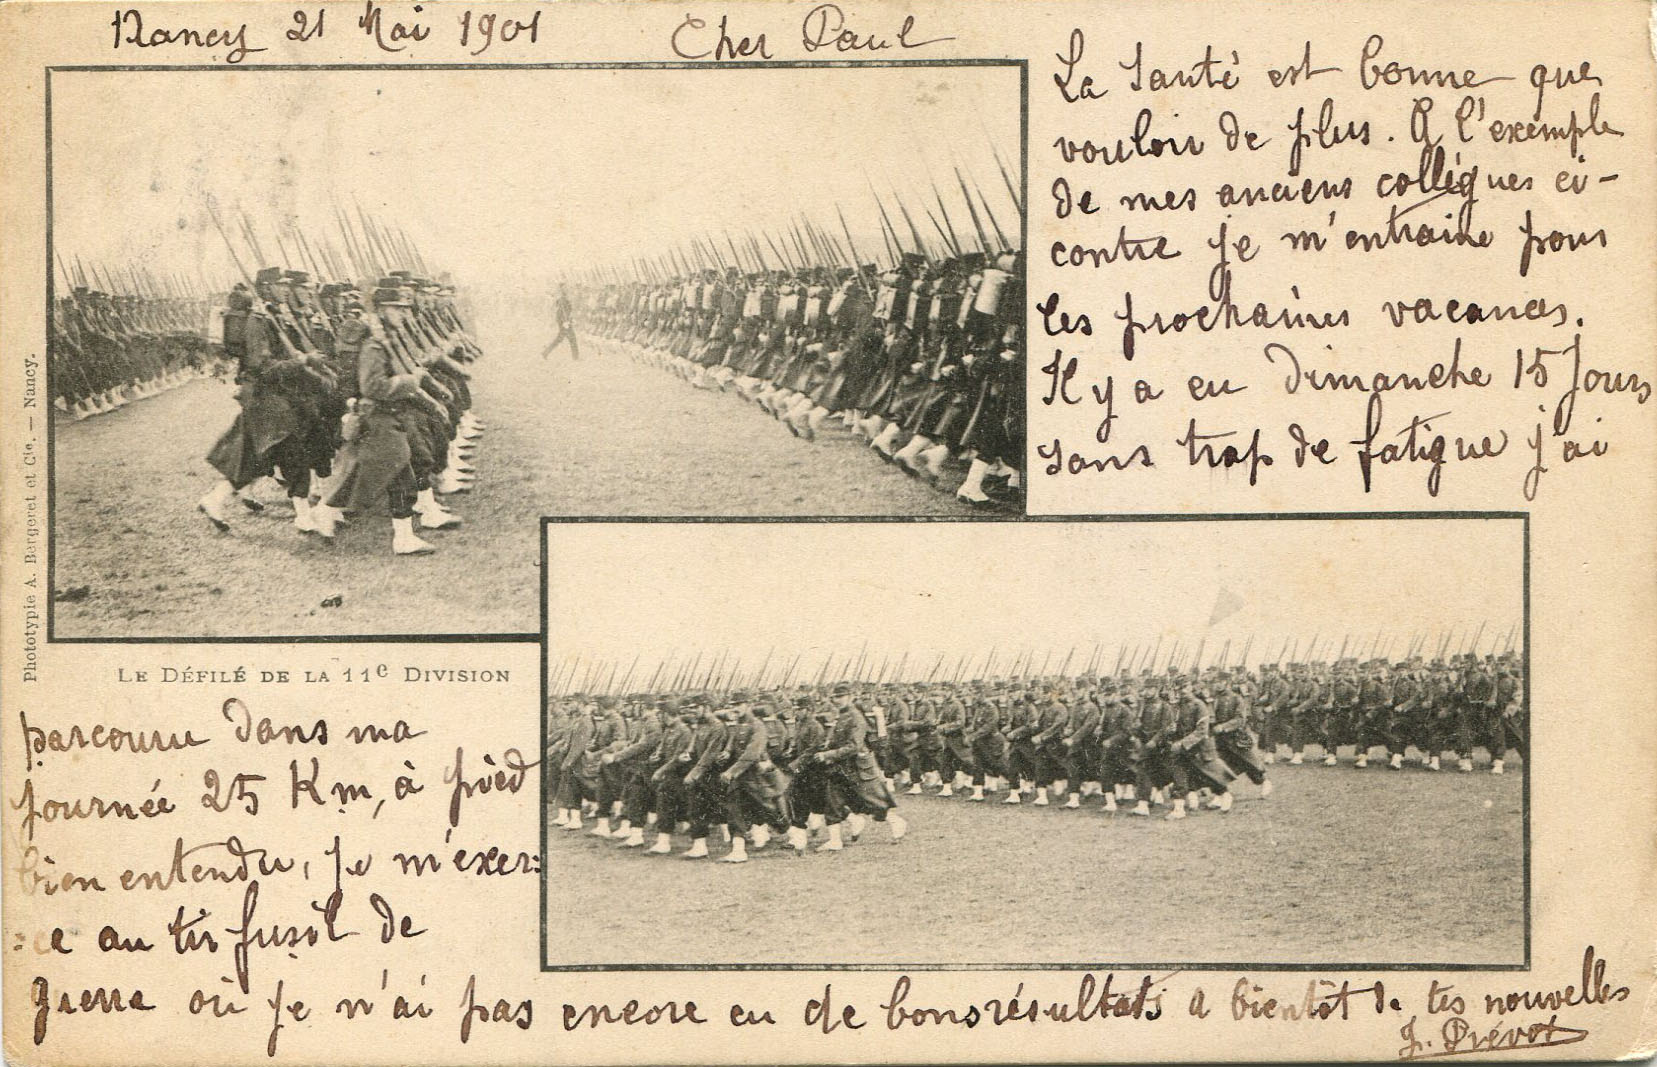 Nancy 21 Mai 1901
Cher Paul
La Santé est bonne que
vouloir de plus. A l'exemple
de mes anciens collègues ci-
contre je m'entraine pour
les prochaines vacances.
Il y a eu Dimanche 15 Jours
sans trop de fatigue j'ai
Phototypie A. Bergeret et Cie. — Nancy.
LE DÉFILÉ DE LA 11e DIVISION
parcouru dans ma
journée 25 Km, à pied
bien entendu, je m'exer=
=ce au tir fusil de
guerre où je n'ai pas encore eu de bons résultats a bientôt de tes nouvelles
J. Prévot